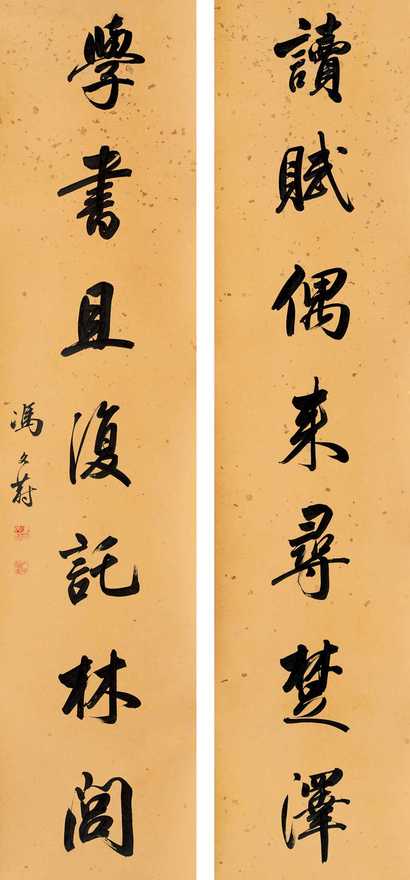 讀賦偶来尋楚澤
學書且復託林閭
馮文蔚